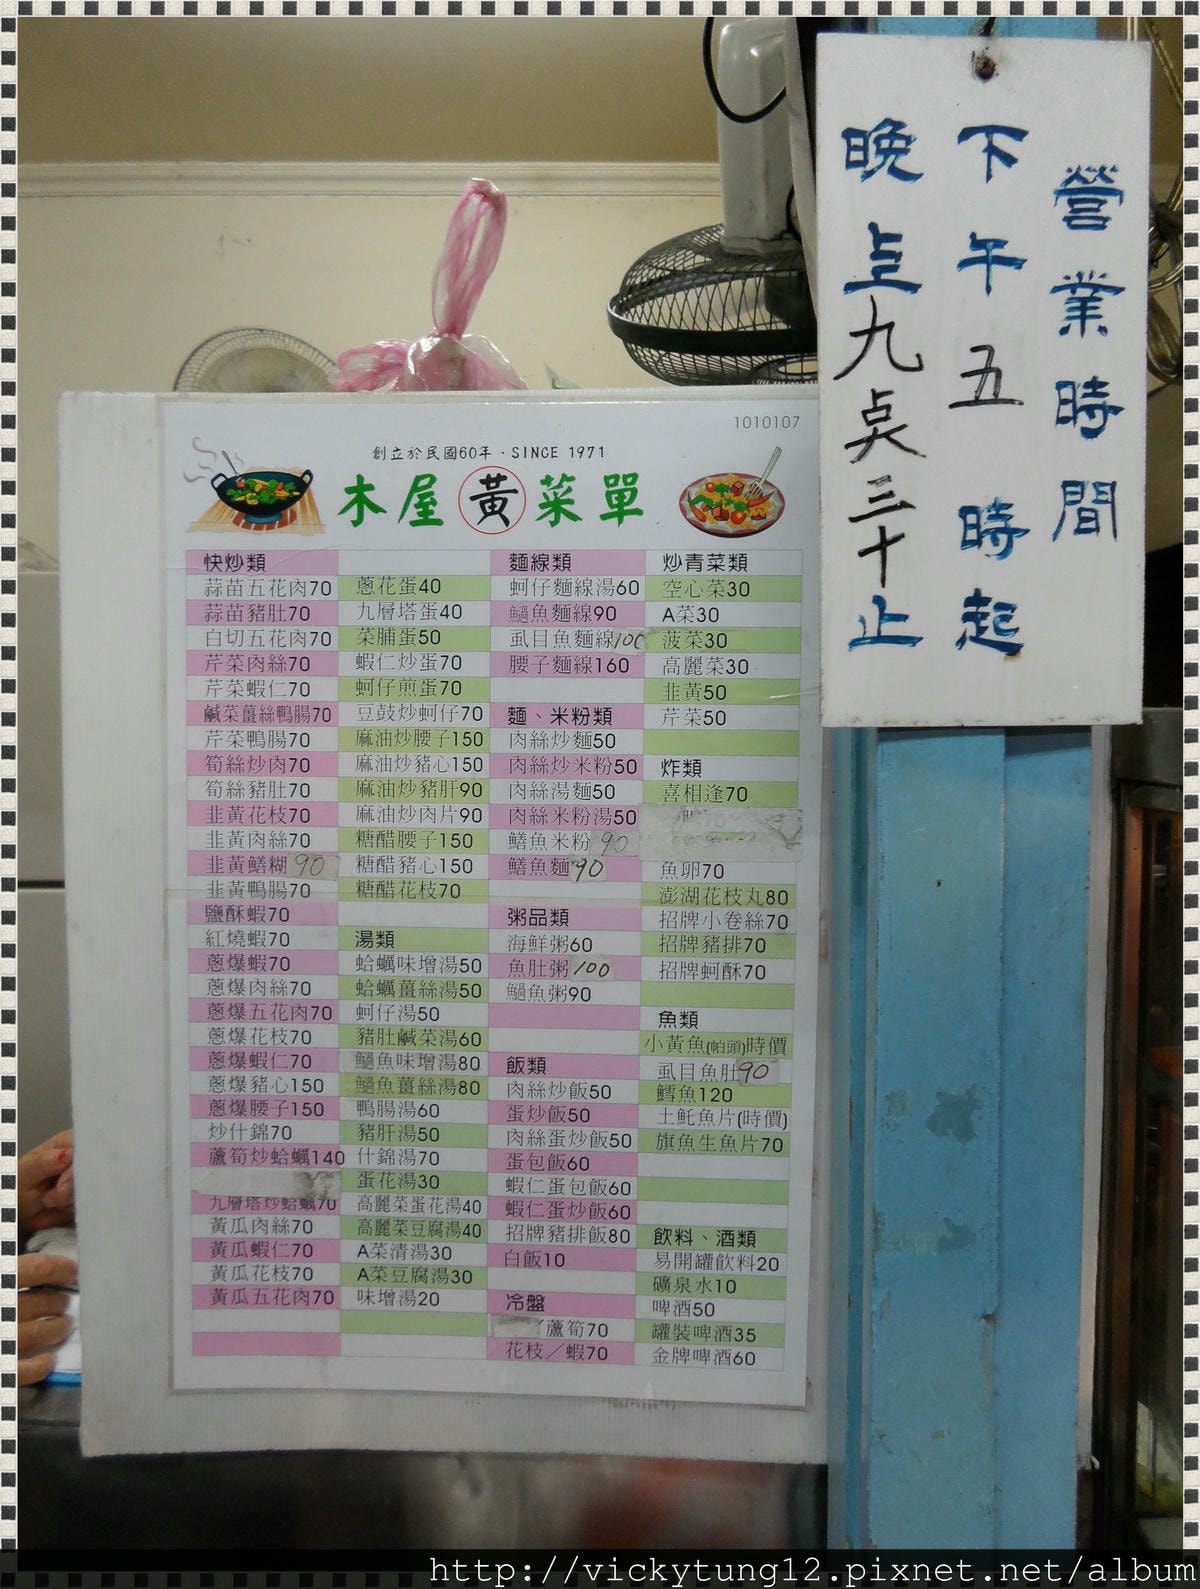 營業時間
下午五時起
晚上九点三十止
1010107
創立於民國60年·SINCE 1971
木屋黃菜單
快炒類
蒜苗五花肉70
蒜苗豬肚70
白切五花肉70
芹菜肉絲70
芹菜蝦仁70
鹹菜薑絲鴨腸70
芹菜鴨腸70
筍絲炒肉70
筍絲豬肚70
韭黃花枝70
韭黃肉絲70
韭黃鱔糊90
韭黃鴨腸70
鹽酥蝦70
紅燒蝦70
蔥爆蝦70
蔥爆肉絲70
蔥爆五花肉70
蔥爆花枝70
蔥爆蝦仁70
蔥爆豬心150
蔥爆腰子150
炒什錦70
蘆筍炒蛤蠣140
九層塔炒蛤蠣70
黃瓜肉絲70
黃瓜蝦仁70
黃瓜花枝70
黃瓜五花肉70
蔥花蛋40
九層塔蛋40
菜脯蛋50
蝦仁炒蛋70
蚵仔煎蛋70
豆鼓炒蚵仔70
麻油炒腰子150
麻油炒豬心150
麻油炒豬肝90
麻油炒肉片90
糖醋腰子150
糖醋豬心150
糖醋花枝70
湯類
蛤蠣味增湯50
蛤蠣薑絲湯50
蚵仔湯50
豬肚鹹菜湯60
魶魚味增湯80
魶魚薑絲湯80
鴨腸湯60
豬肝湯50
什錦湯70
蛋花湯30
高麗菜蛋花湯40
高麗菜豆腐湯40
A菜清湯30
A菜豆腐湯30
味增湯20
麵線類
蚵仔麵線湯60
魶魚麵線90
虱目魚麵線100
腰子麵線160
麵、米粉類
肉絲炒麵50
肉絲炒米粉50
肉絲湯麵50
肉絲米粉湯50
鱔魚米粉90
鱔魚麵90
粥品類
海鮮粥60
魚肚粥100
魶魚粥90
飯類
肉絲炒飯50
蛋炒飯50
肉絲蛋炒飯50
蛋包飯60
蝦仁蛋包飯60
蝦仁蛋炒飯60
招牌豬排飯80
白飯10
冷盤
蘆筍70
花枝／蝦70
炒青菜類
空心菜30
A菜30
菠菜30
高麗菜30
韭黃50
芹菜50
炸類
喜相逢70
魚卵70
澎湖花枝丸80
招牌小卷絲70
招牌豬排70
招牌蚵酥70
魚類
小黃魚(帕頭)時價
虱目魚肚90
鱈魚120
土魠魚片(時價)
旗魚生魚片70
飲料、酒類
易開罐飲料20
礦泉水10
啤酒50
罐裝啤酒35
金牌啤酒60
http://vickytung12.pixnet.net/album